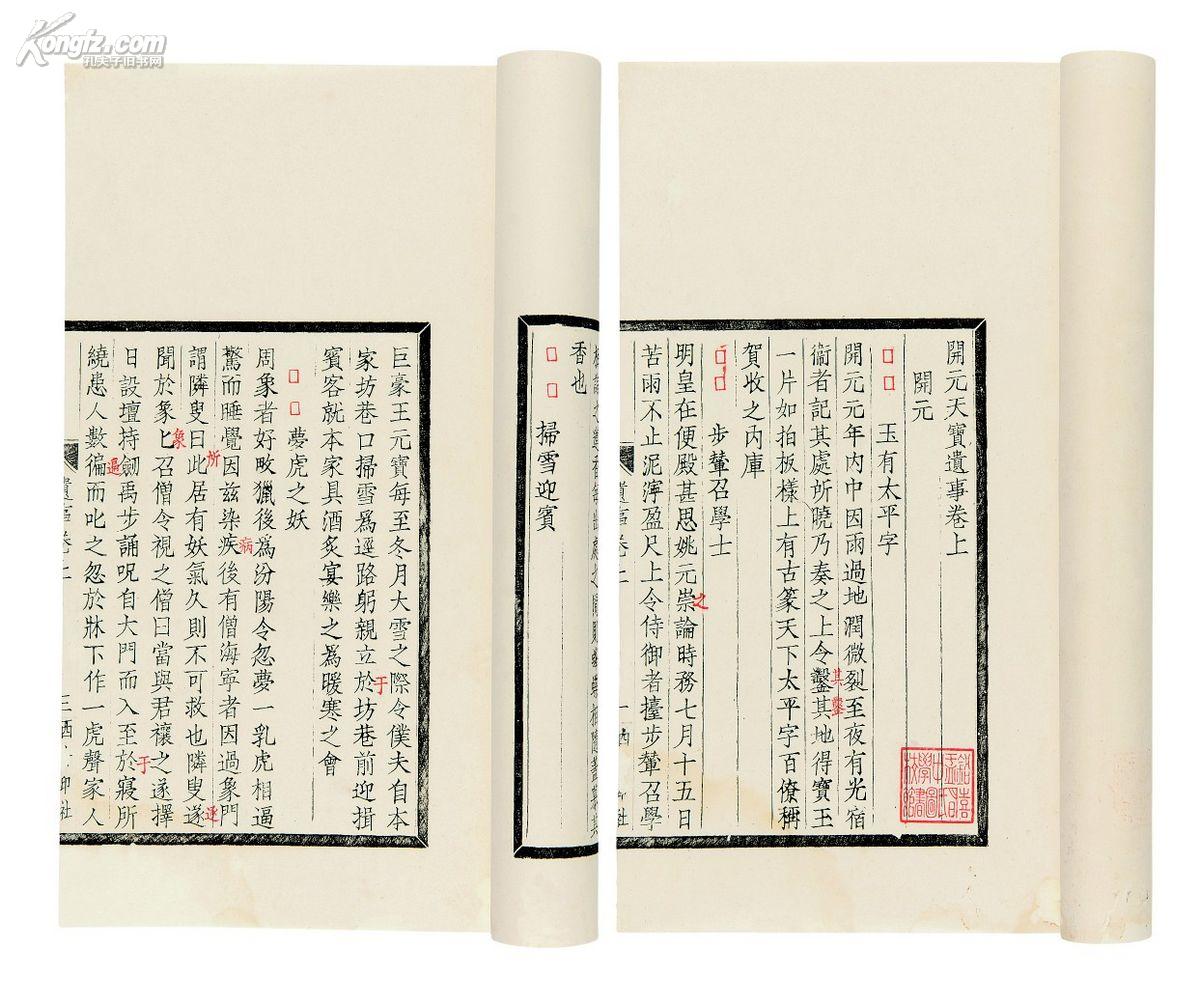 Kongfz.com
孔夫子旧书网
開元天寶遺事卷上
開元
玉有太平字
開元元年內中因雨過地潤微裂至夜有光宿
衞者記其處所曉乃奏之上令鑿其地得寶玉
其鑿
一片如拍板樣上有古篆天下太平字百僚稱
賀收之內庫
步輦召學士
明皇在便殿甚思姚元崇論時務七月十五日
之
苦雨不止泥濘盈尺上令侍御者擡步輦召學
香也
掃雪迎賓
巨豪王元寶每至冬月大雪之際令僕夫自本
家坊巷口掃雪爲逕路躬親立於坊巷前迎揖
于
賓客就本家具酒炙宴樂之爲暖寒之會
夢虎之妖
周象者好畋獵後爲汾陽令忽夢一乳虎相逼
驚而睡覺因茲染疾後有僧海寧者因過象門
病
謂隣叟曰此居有妖氣久則不可救也隣叟遂
所
逐
聞於象匕召僧令視之僧曰當與君禳之遂擇
象
日設壇持劒禹步誦呪自大門而入至於寢所
于
繞患人數徧而叱之忽於牀下作一虎聲家人
遍